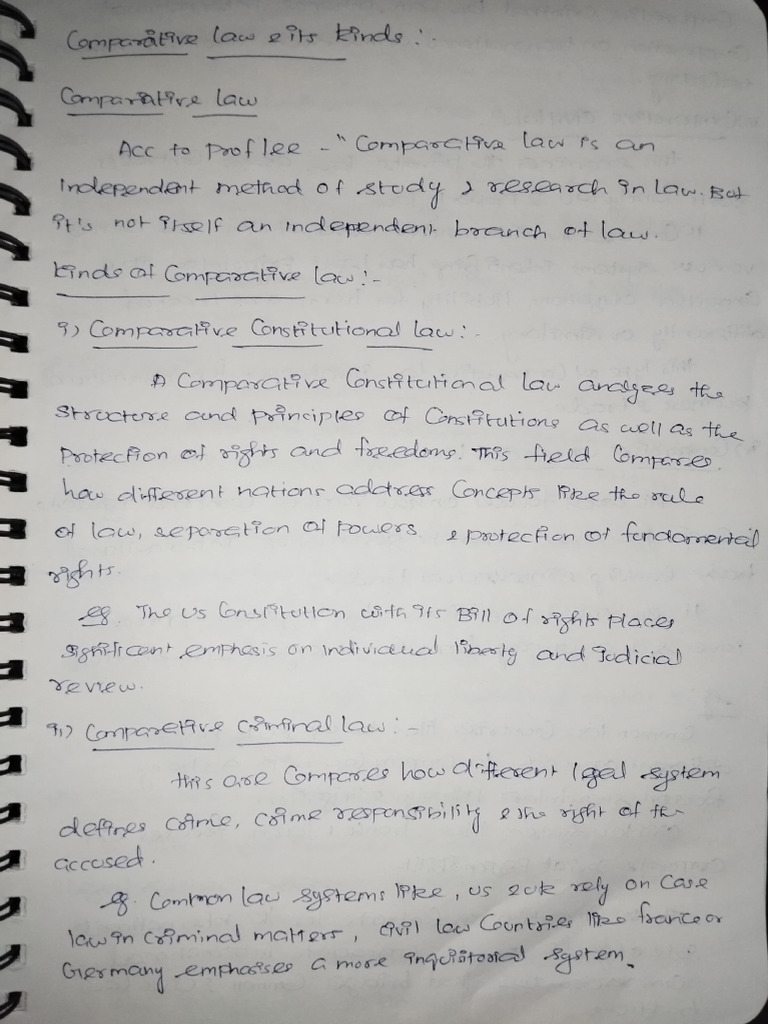 Comparative law & its kinds :-
Comparative law
Acc to prof lee - "Comparative law is an
independent method of study & research in law. But
it's not itself an independent branch of law.
Kinds of Comparative law :-
i) Comparative Constitutional law :-
A Comparative Constitutional law analyzes the
structure and principles of Constitutions as well as the
Protection of rights and freedoms. This field Compares
how different nations address Concepts like the rule
of law, separation of powers & protection of fundamental
rights.
eg. The US Constitution with its Bill of rights places
significant emphesis on individual liberty and judicial
review.
ii) Comparetive criminal law :-
this are Compares how different legal system
defines crime, crime responsibility & the right of the
accused.
eg. Common law systems like, US & UK rely on Case
law in criminal matters, civil law Countries like france or
Germany emphasises a more inquistorial system.